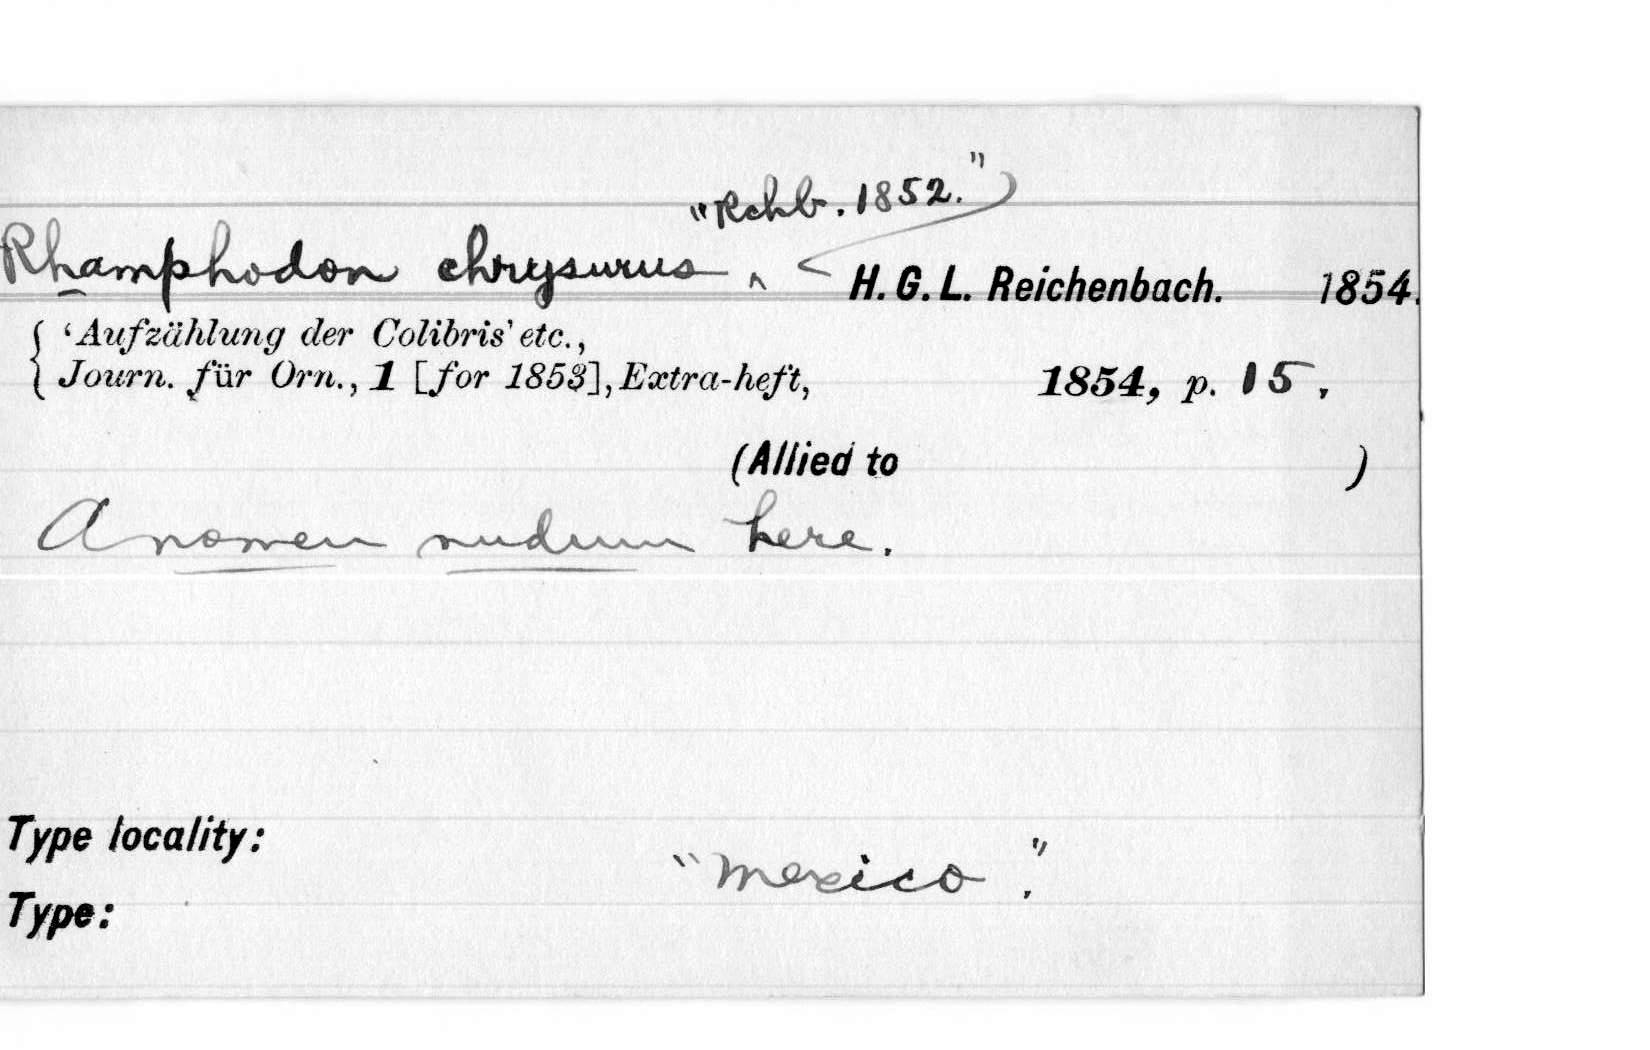 "Rchb. 1852."
Rhamphodon chrysurus ^ H. G. L. Reichenbach. 1854.
'Aufzählung der Colibris' etc.,
Journ. für Orn., 1 [for 1853], Extra-heft, 1854, p. 15.
(Allied to )
A nomen nudum here.
Type locality:
"Mexico."
Type: